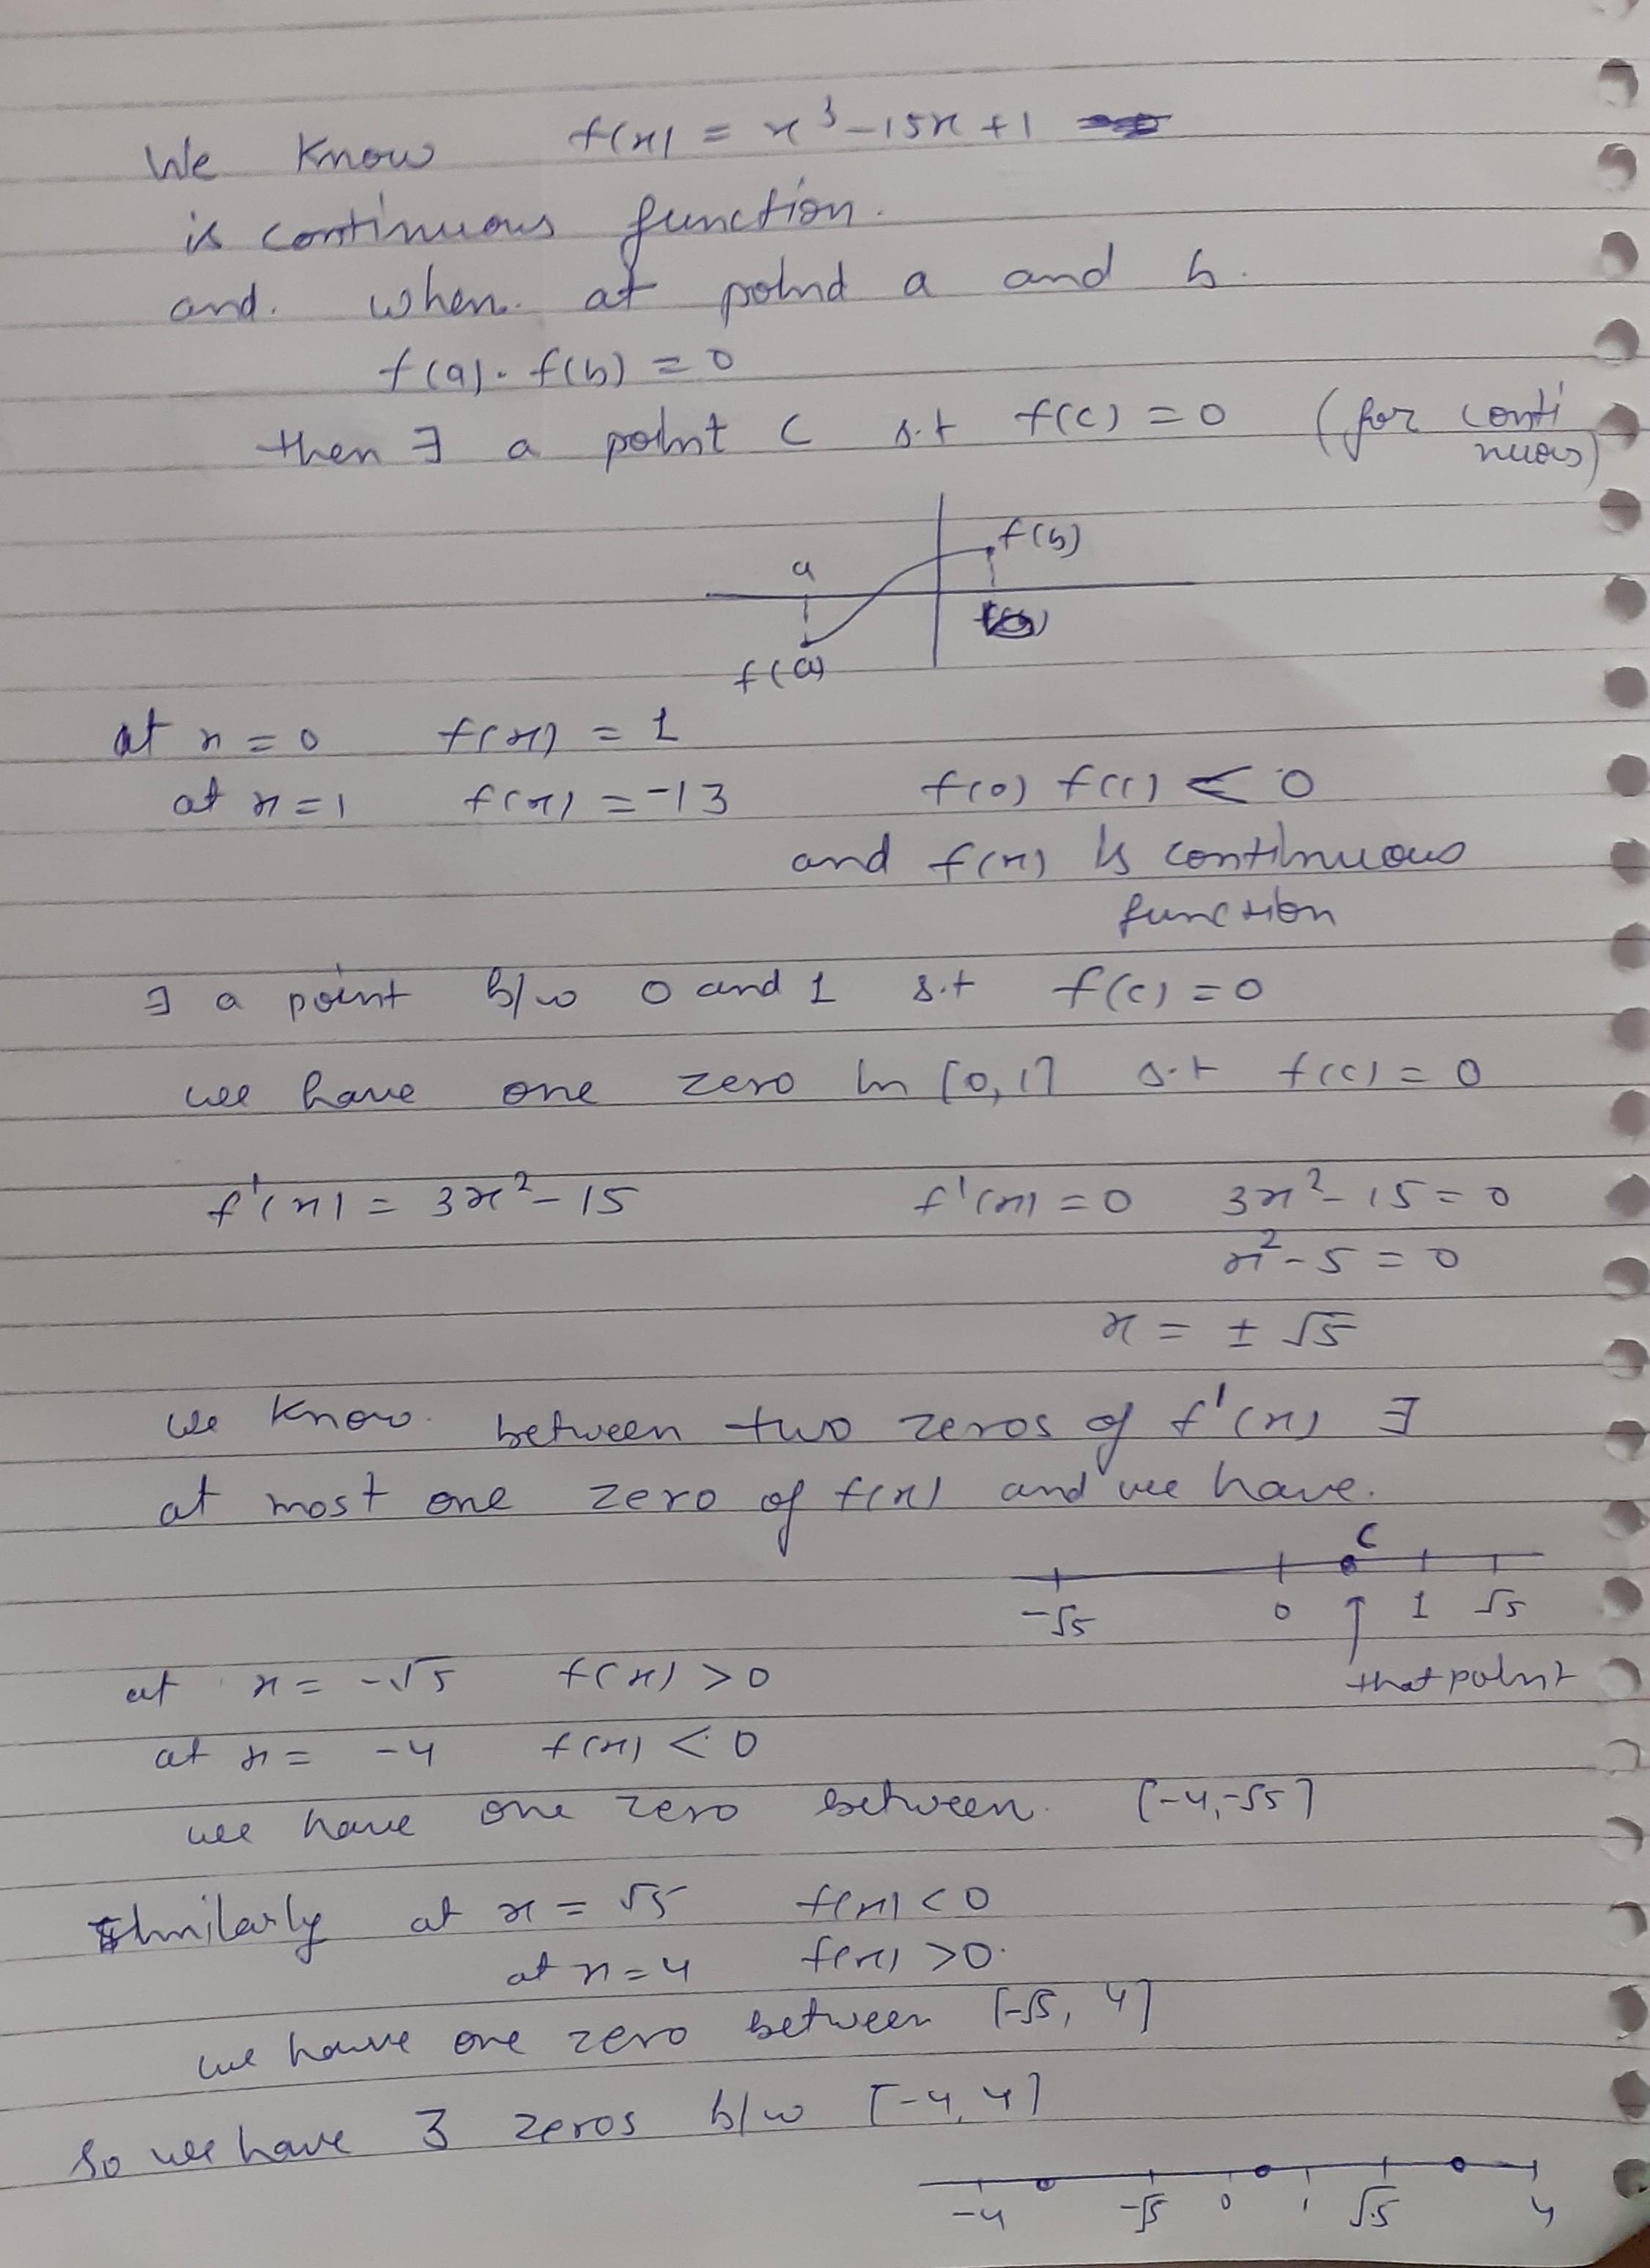 We know f(x) = x³ - 15x + 1
is continuous function.
and. when. at poind a and b.
f(a). f(b) = 0
then ∃ a point c s.t f(c) = 0 (for conti
nuous)
f(b)
a
f(a)
at x = 0 f(x) = 1
at x = 1 f(x) = -13 f(0) f(1) < 0
and f(x) is continuous
function
∃ a point b/w 0 and 1 s.t f(c) = 0
we have one zero in [0,1] s.t f(c) = 0
f'(x) = 3x² - 15 f'(x) = 0 3x² - 15 = 0
x² - 5 = 0
x = ± √5
we know. between two zeros of f'(x) ∃
at most one zero of f(x) and we have.
c
-√5 0 ↑ 1 √5
that point
at x = -√5 f(x) > 0
at x = -4 f(x) < 0
we have one zero between. [-4,-√5]
Similarly at x = √5 f(x) < 0
at x = 4 f(x) > 0.
we have one zero between [-√5, 4]
So we have 3 zeros b/w [-4, 4]
-4 -√5 0 1 √5 4